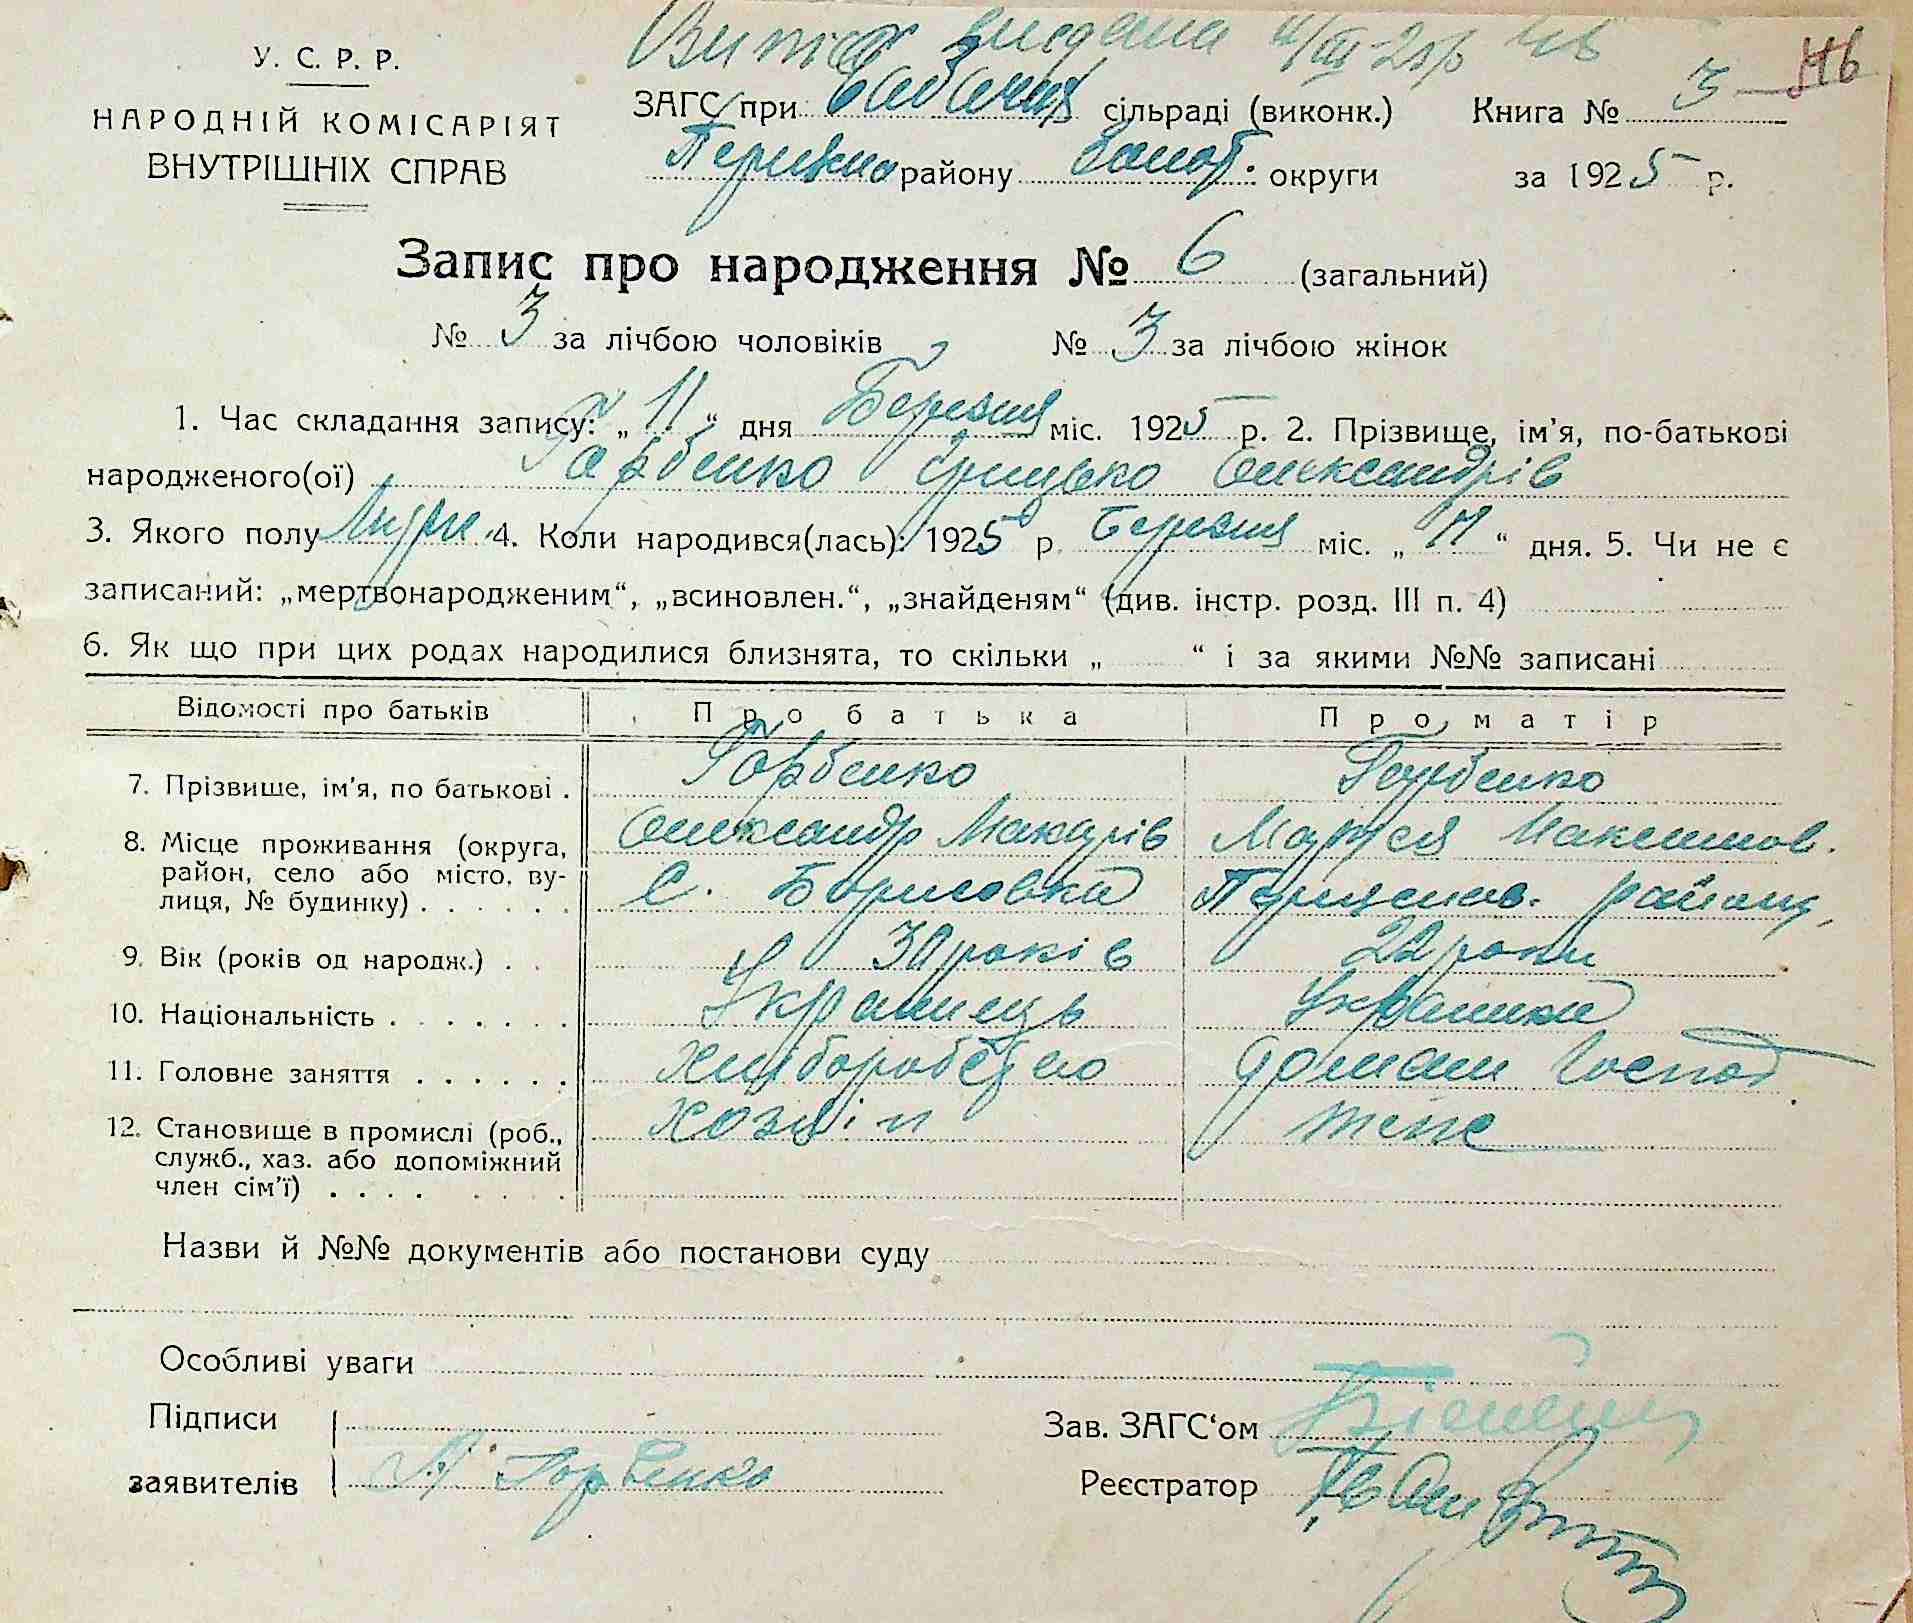 У. С. Р. Р.
НАРОДНІЙ КОМІСАРІЯТ
ВНУТРІШНІХ СПРАВ
видана
ЗАГС при сільраді (виконк.) Книга № 3
району округи за 1925 р.
Запис про народження № 6 (загальний)
№ 3 за лічбою чоловіків № 3 за лічбою жінок
1. Час складання запису: „ 11 “ дня Березня міс. 1925 р. 2. Прізвище, ім'я, по-батькові
народженого(ої) Гарбенко Грицько Олександрів
3. Якого полу 4. Коли народився(лась): 1925 р. Березня міс. „ “ дня. 5. Чи не є
записаний: „мертвонародженим“, „всиновлен.“, „знайденям“ (див. інстр. розд. III п. 4)
6. Як що при цих родах народилися близнята, то скільки „ “ і за якими №№ записані
Відомості про батьків Про батька Про матір
7. Прізвише, ім'я, по батькові . Горбенко Горбенко
8. Місце проживання (округа, район, село або місто, вулиця, № будинку) . . . . . . Олександр Макарів Маруся Максимов.
С. Борисовка району,
9. Вік (років од народж.) . . 30 років 22 роки
10. Національність . . . . . . . Українець Українка
11. Головне заняття . . . . . . Хліборобство Домашн Господ
12. Становище в промислі (роб., служб., хаз. або допоміжний член сім'ї) . . . . Хозяін
Назви й №№ документів або постанови суду
Особливі уваги
Підписи Зав. ЗАГС‘ом
заявителів Горбенко Реєстратор